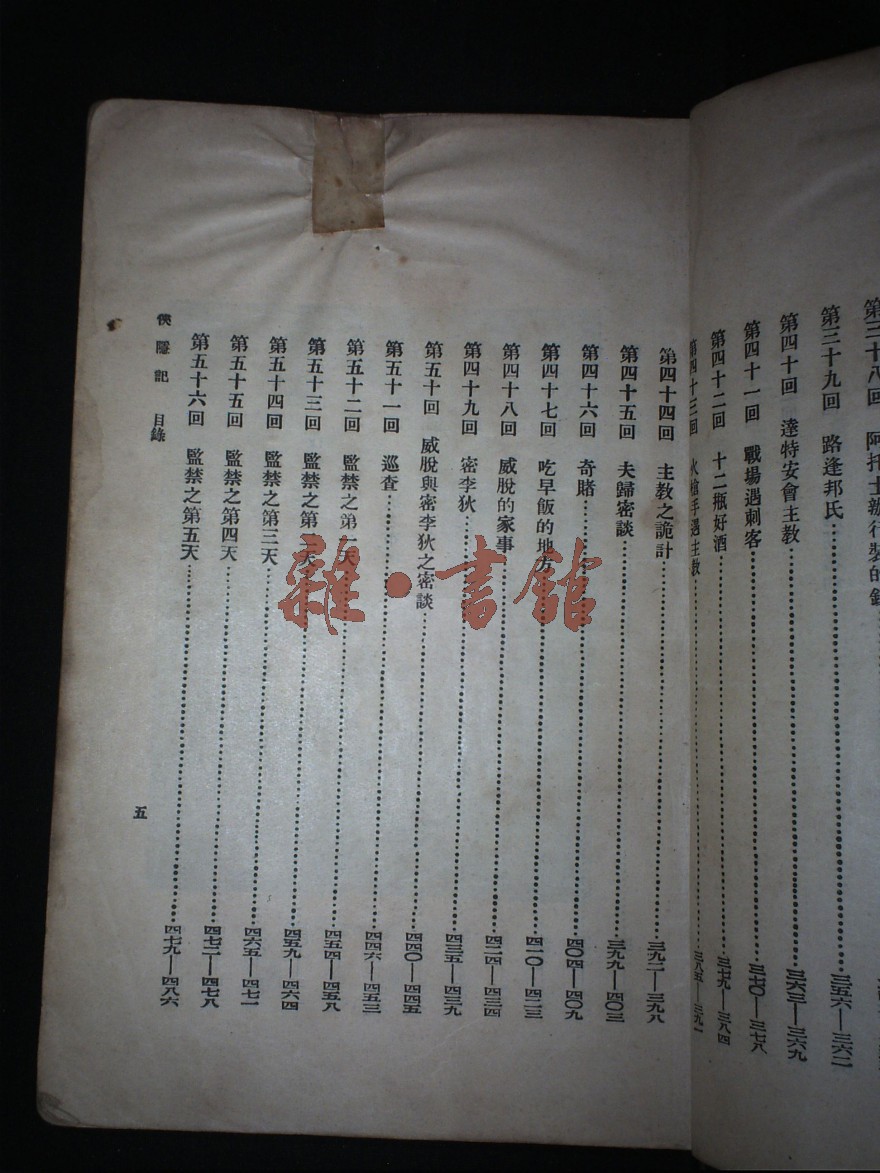 第三十八回 阿托士辦行裝的錢
第三十九回 路逢邦氏……三五六—三六二
第四十回 達特安會主教……三六三—三六九
第四十一回 戰場遇刺客……三七〇—三七八
第四十二回 十二瓶好酒……三七九—三八四
第四十三回 火槍手遇主教……三八五—三九一
第四十四回 主教之詭計……三九二—三九八
第四十五回 夫歸密談……三九九—四〇三
第四十六回 奇賭……四〇四—四〇九
第四十七回 吃早飯的地方……四一〇—四二三
第四十八回 威脫的家事……四二四—四三四
第四十九回 密李狄……四三五—四三九
第五十回 威脫與密李狄之密談……四四〇—四四五
第五十一回 巡查……四四六—四五三
第五十二回 監禁之第一天……四五四—四五八
第五十三回 監禁之第二天……四五九—四六四
第五十四回 監禁之第三天……四六五—四七一
第五十五回 監禁之第四天……四七二—四七八
第五十六回 監禁之第五天……四七九—四八六
俠隱記 目錄
五
雜·書館